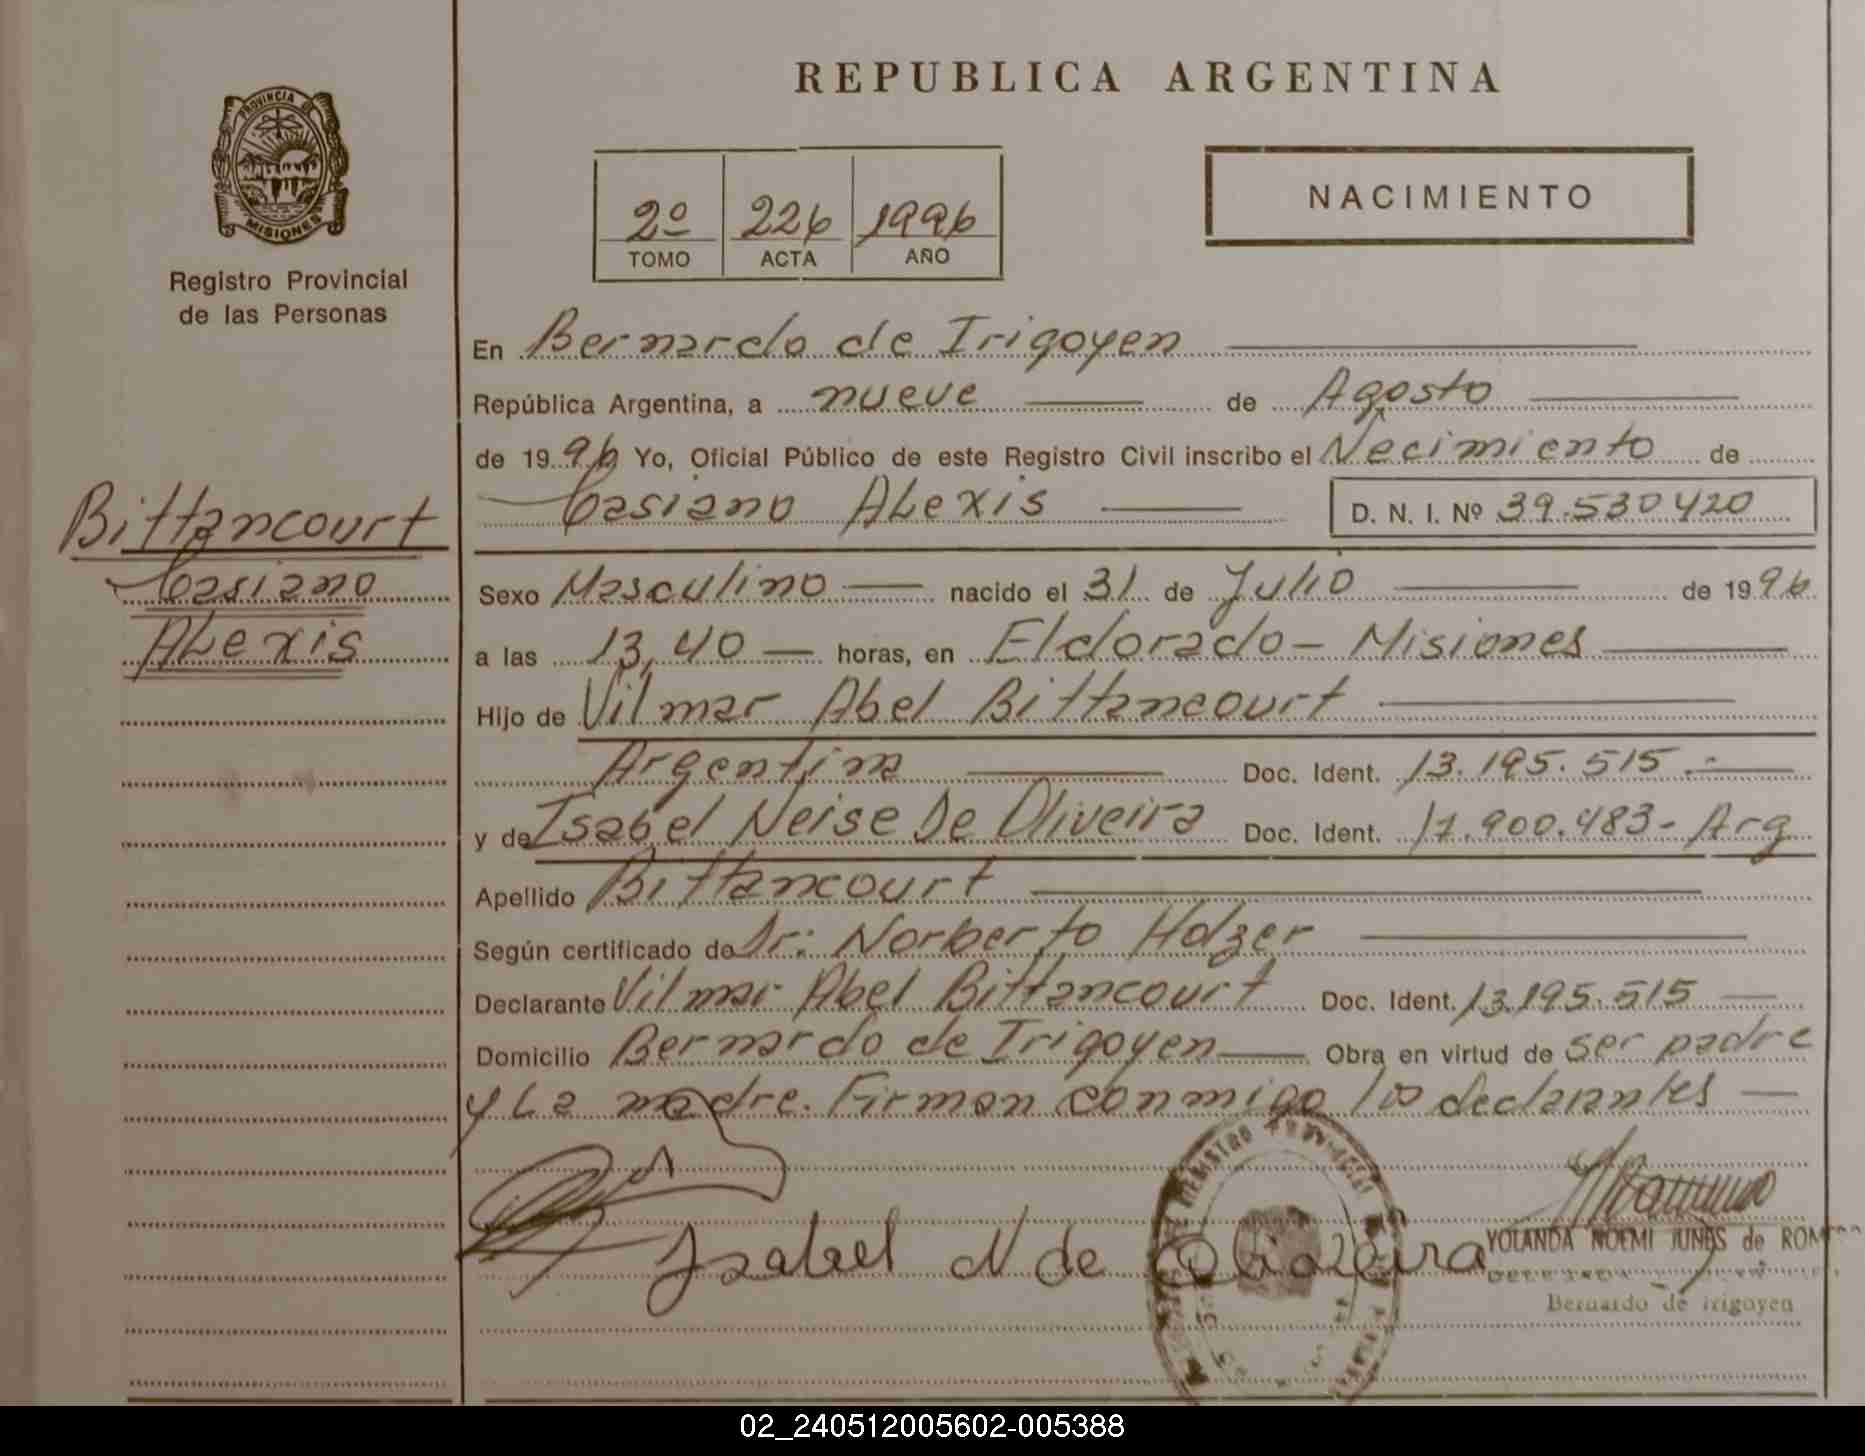 REPUBLICA ARGENTINA
PROVINCIA DE
MISIONES
Registro Provincial
de las Personas
2º 226 1996
TOMO ACTA AÑO
NACIMIENTO
En Bernardo de Irigoyen
República Argentina, a nueve de Agosto
de 1996 Yo, Oficial Público de este Registro Civil inscribo el Necimiento de
Casiano ALexis D. N. I. Nº 39.530420
Bittancourt
Casiano
ALexis
Sexo Masculino nacido el 31 de Julio de 1996
a las 13,40 horas, en Eldorado - Misiones
Hijo de Vilmar Abel Bittancourt
Argentina Doc. Ident. 13.195.515.-
y de Isabel Neise De Oliveira Doc. Ident. 17.900.483- Arg
Apellido Bittancourt
Según certificado de Dr: Norberto Holzer
Declarante Vilmar Abel Bittancourt Doc. Ident. 13.195.515
Domicilio Bernardo de Irigoyen Obra en virtud de ser padre
y La madre. Firman conmigo los declarantes
Isabel N de Oliveira
YOLANDA NOEMI JUNES de ROM
Bernardo de Irigoyen
02_240512005602-005388